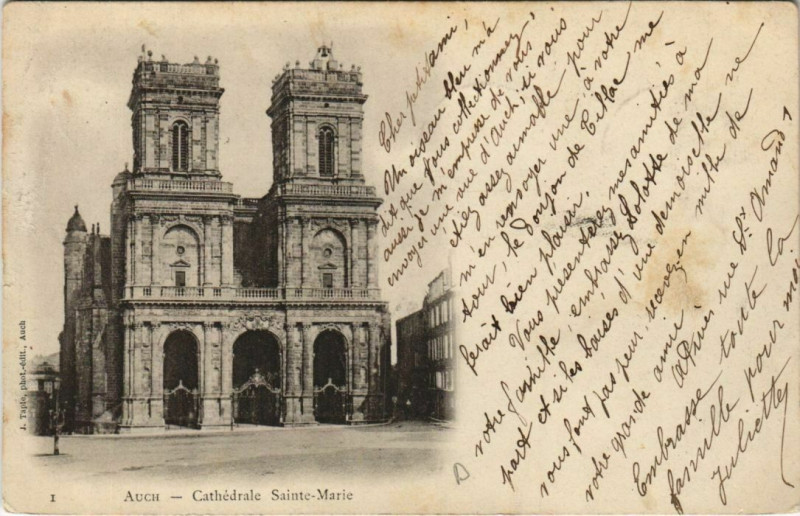 Cher petit ami,
Un oiseau bleu m'a
dit que vous collectionnez
aussi je m'empresse de vous
envoyer une vue d'Auch, si vous
etiez assez aimable pour
m'en renvoyer une, à votre
tour, le donjon de Tillac me
ferait bien plaisir.
Vous presenterez mes amitiés à
votre famille, embrassez Lolotte de ma
part et si les baisers d'une demoiselle ne
vous font pas peur, recevez en mille de
votre grande amie
rue St Amand 1
Embrasse toute la
famille pour moi
Juliette
J. Tapie, phot.-édit., Auch
1 AUCH — Cathédrale Sainte-Marie